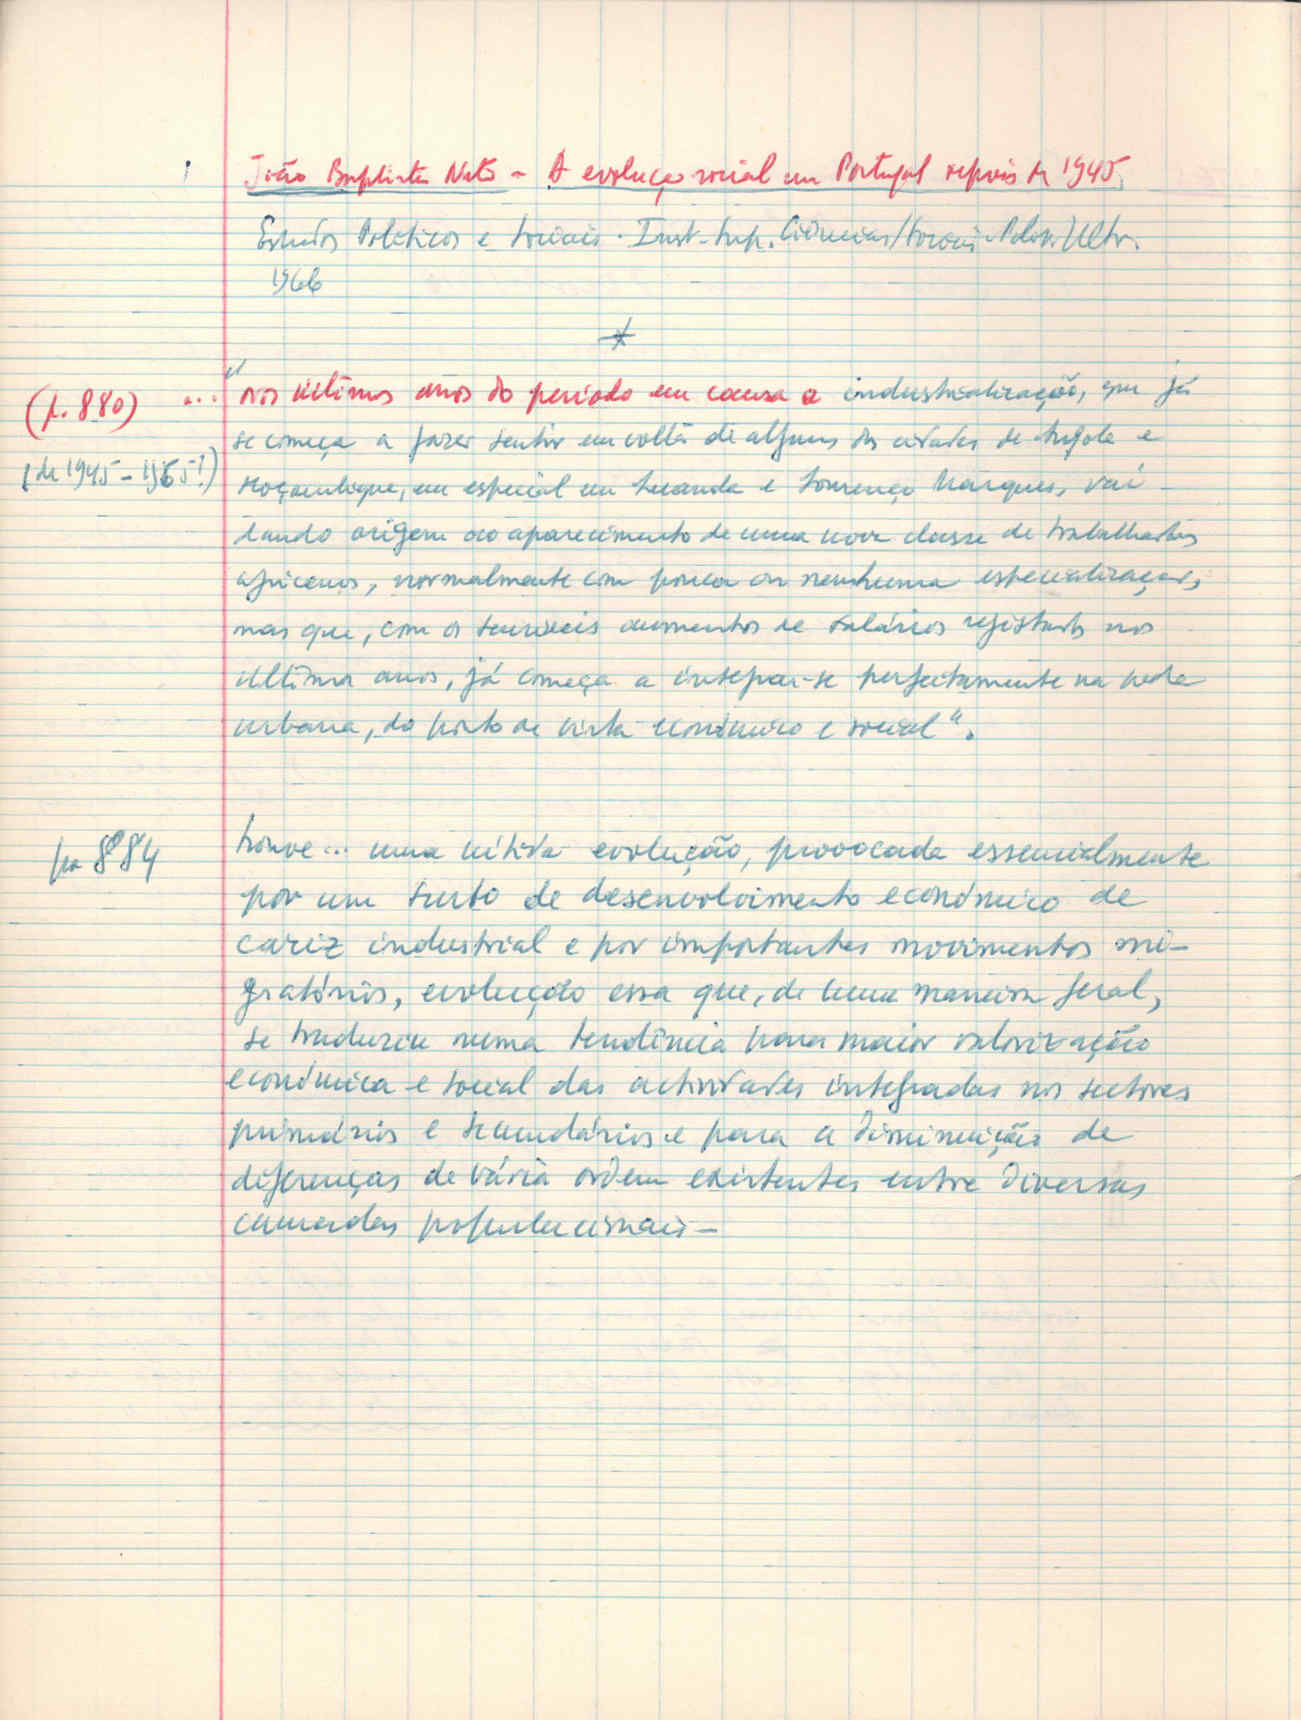 João Baptista Neto - A evolução social em Portugal depois de 1945.
Estudos Politicos e Sociais. Inst. Sup. Ciências Sociais Ultr.
1966
(p. 880) ... "nos últimos anos do periodo em causa a industrialização, que já
(de 1945-1965!)
se começa a fazer sentir em volta de algumas das cidades de Angola e
Moçambique, em especial em Luanda e Lourenço Marques, vai
dando origem ao aparecimento de uma nova classe de trabalhadores
africanos, normalmente com pouca ou nenhuma especialização,
mas que, com os sensíveis aumentos de salários registados nos
últimos anos, já começa a integrar-se perfeitamente na vida
urbana, do ponto de vista económico e social".
pa 884 houve... uma nítida evolução, provocada essencialmente
por um surto de desenvolvimento económico de
cariz industrial e por importantes movimentos mi-
gratórios, evolução essa que, de uma maneira geral,
se traduziu numa tendência para maior valorização
económica e social das actividades integradas nos sectores
primários e secundários e para a diminuição de
diferenças de vária ordem existentes entre diversas
camadas populacionais -